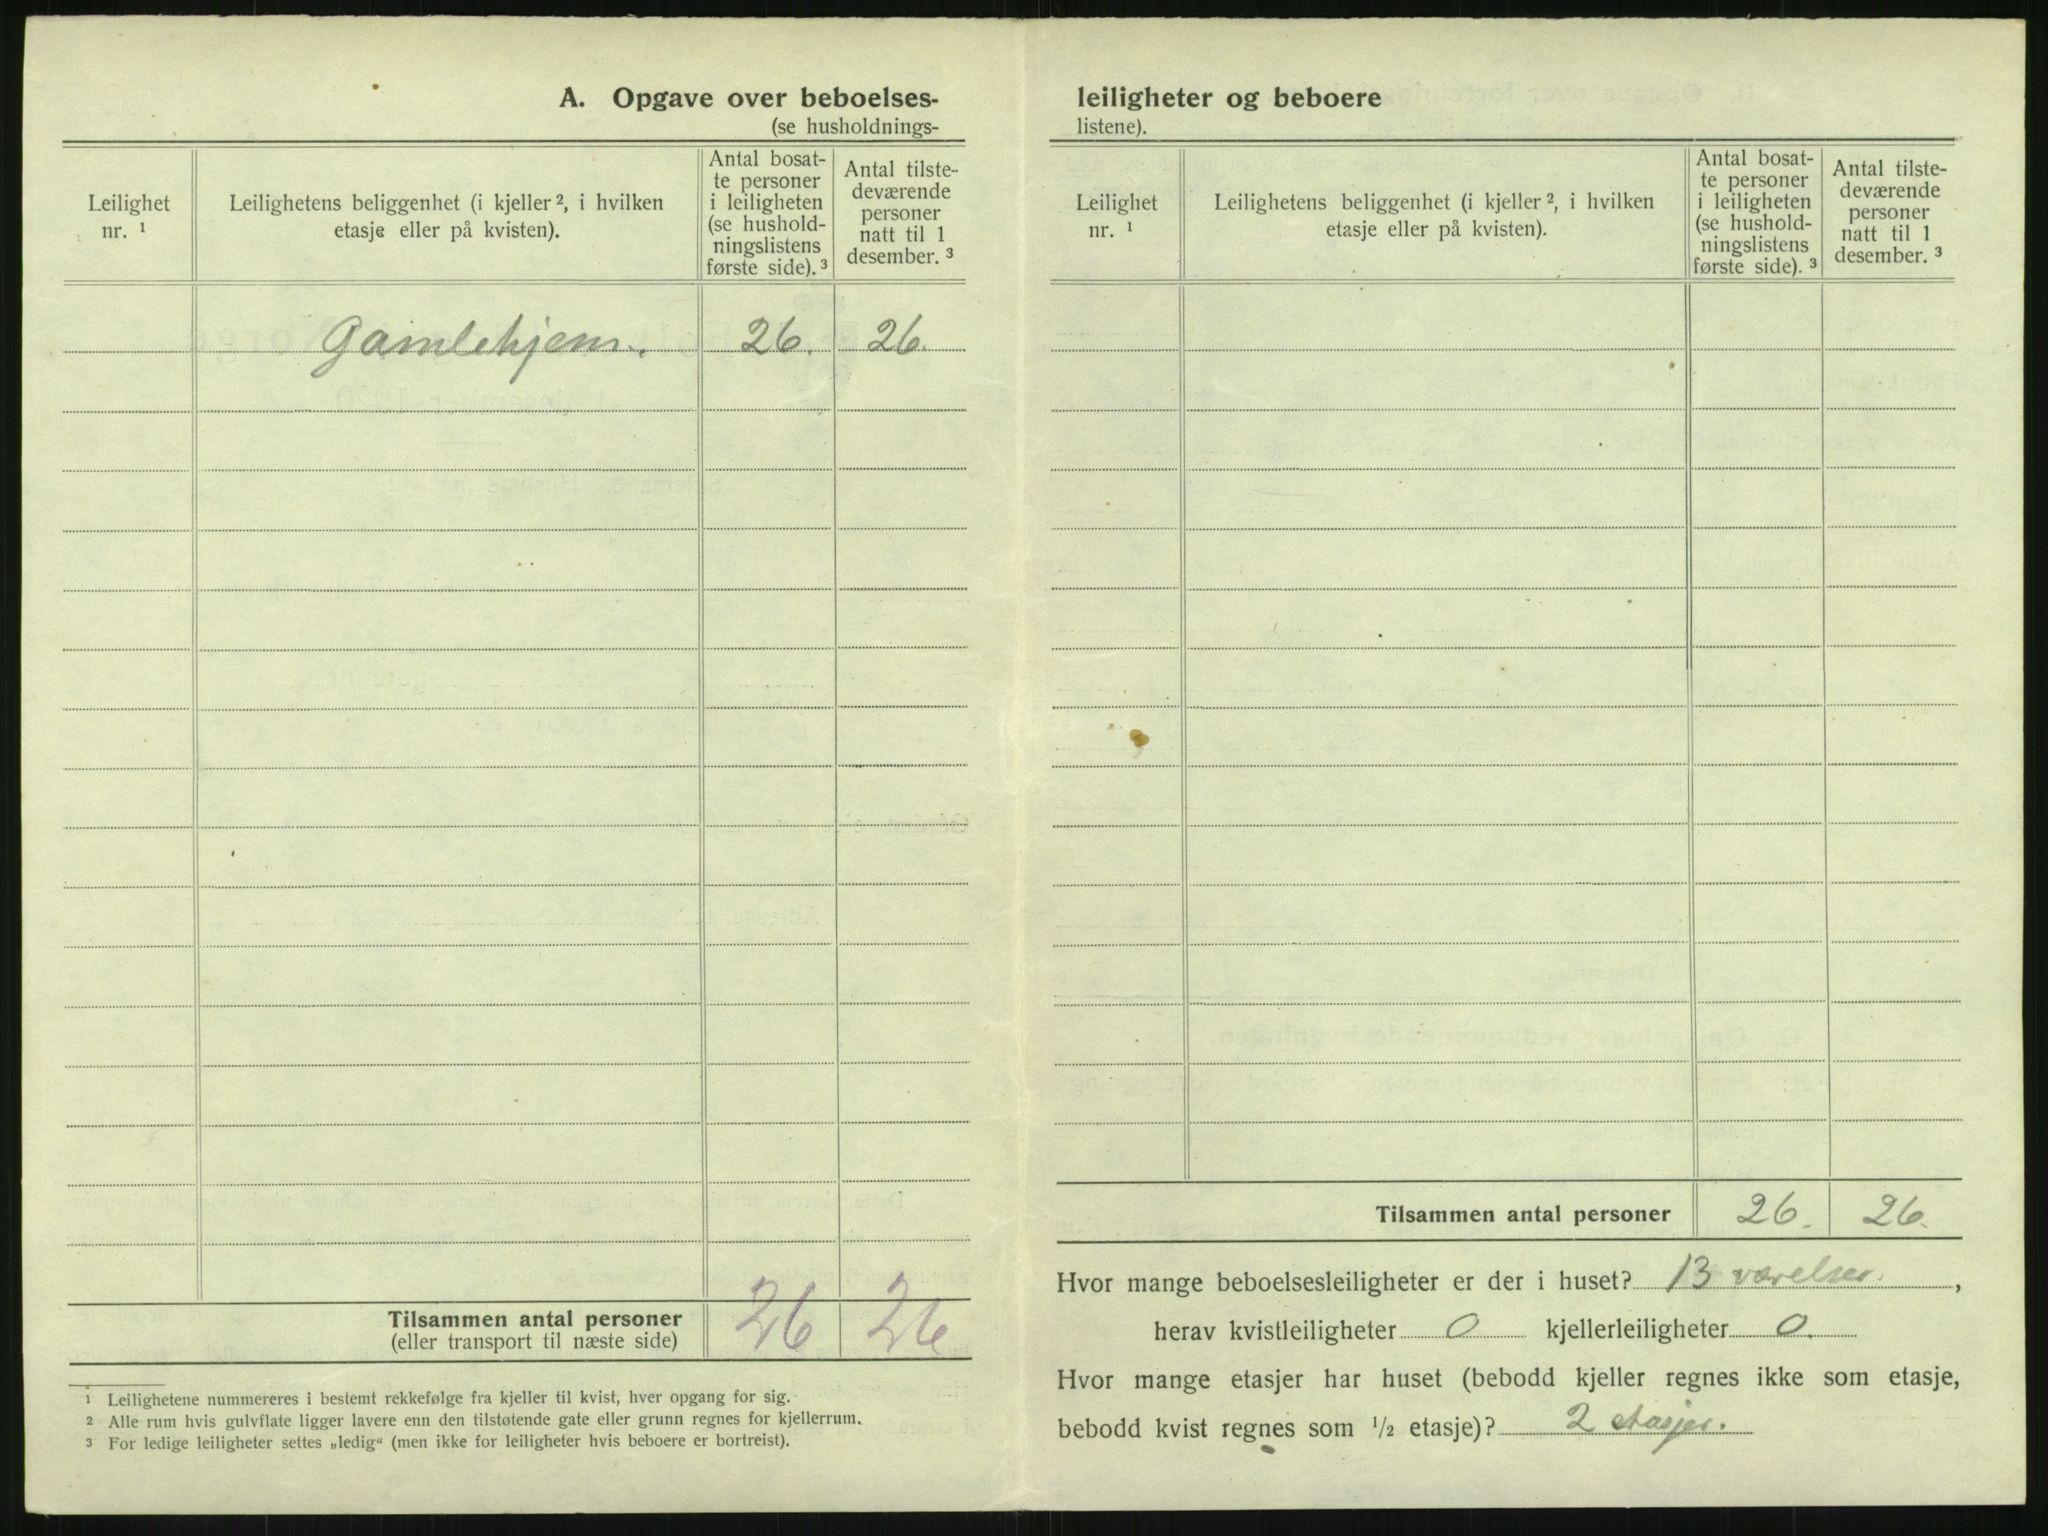 A. Opgave over beboelses-
(se husholdnings-
Leilighet nr. ¹
Leilighetens beliggenhet (i kjeller ², i hvilken etasje eller på kvisten).
Antal bosat-
te personer
i leiligheten
(se hushold-
ningslistens
første side). ³
Antal tilste-
deværende
personer
natt til 1
desember. ³
Gamlehjem. 26. 26.
Tilsammen antal personer 26 26
(eller transport til næste side)
¹ Leilighetene nummereres i bestemt rekkefølge fra kjeller til kvist, hver opgang for sig.
² Alle rum hvis gulvflate ligger lavere enn den tilstøtende gate eller grunn regnes for kjellerrum.
³ For ledige leiligheter settes „ledig“ (men ikke for leiligheter hvis beboere er bortreist).
leiligheter og beboere
listene).
Leilighet nr. ¹
Leilighetens beliggenhet (i kjeller ², i hvilken etasje eller på kvisten).
Antal bosat-
te personer
i leiligheten
(se hushold-
ningslistens
første side). ³
Antal tilste-
deværende
personer
natt til 1
desember. ³
Tilsammen antal personer 26. 26.
Hvor mange beboelsesleiligheter er der i huset? 13 værelser.,
herav kvistleiligheter 0 kjellerleiligheter 0.
Hvor mange etasjer har huset (bebodd kjeller regnes ikke som etasje,
bebodd kvist regnes som ½ etasje)? 2 etasjer.